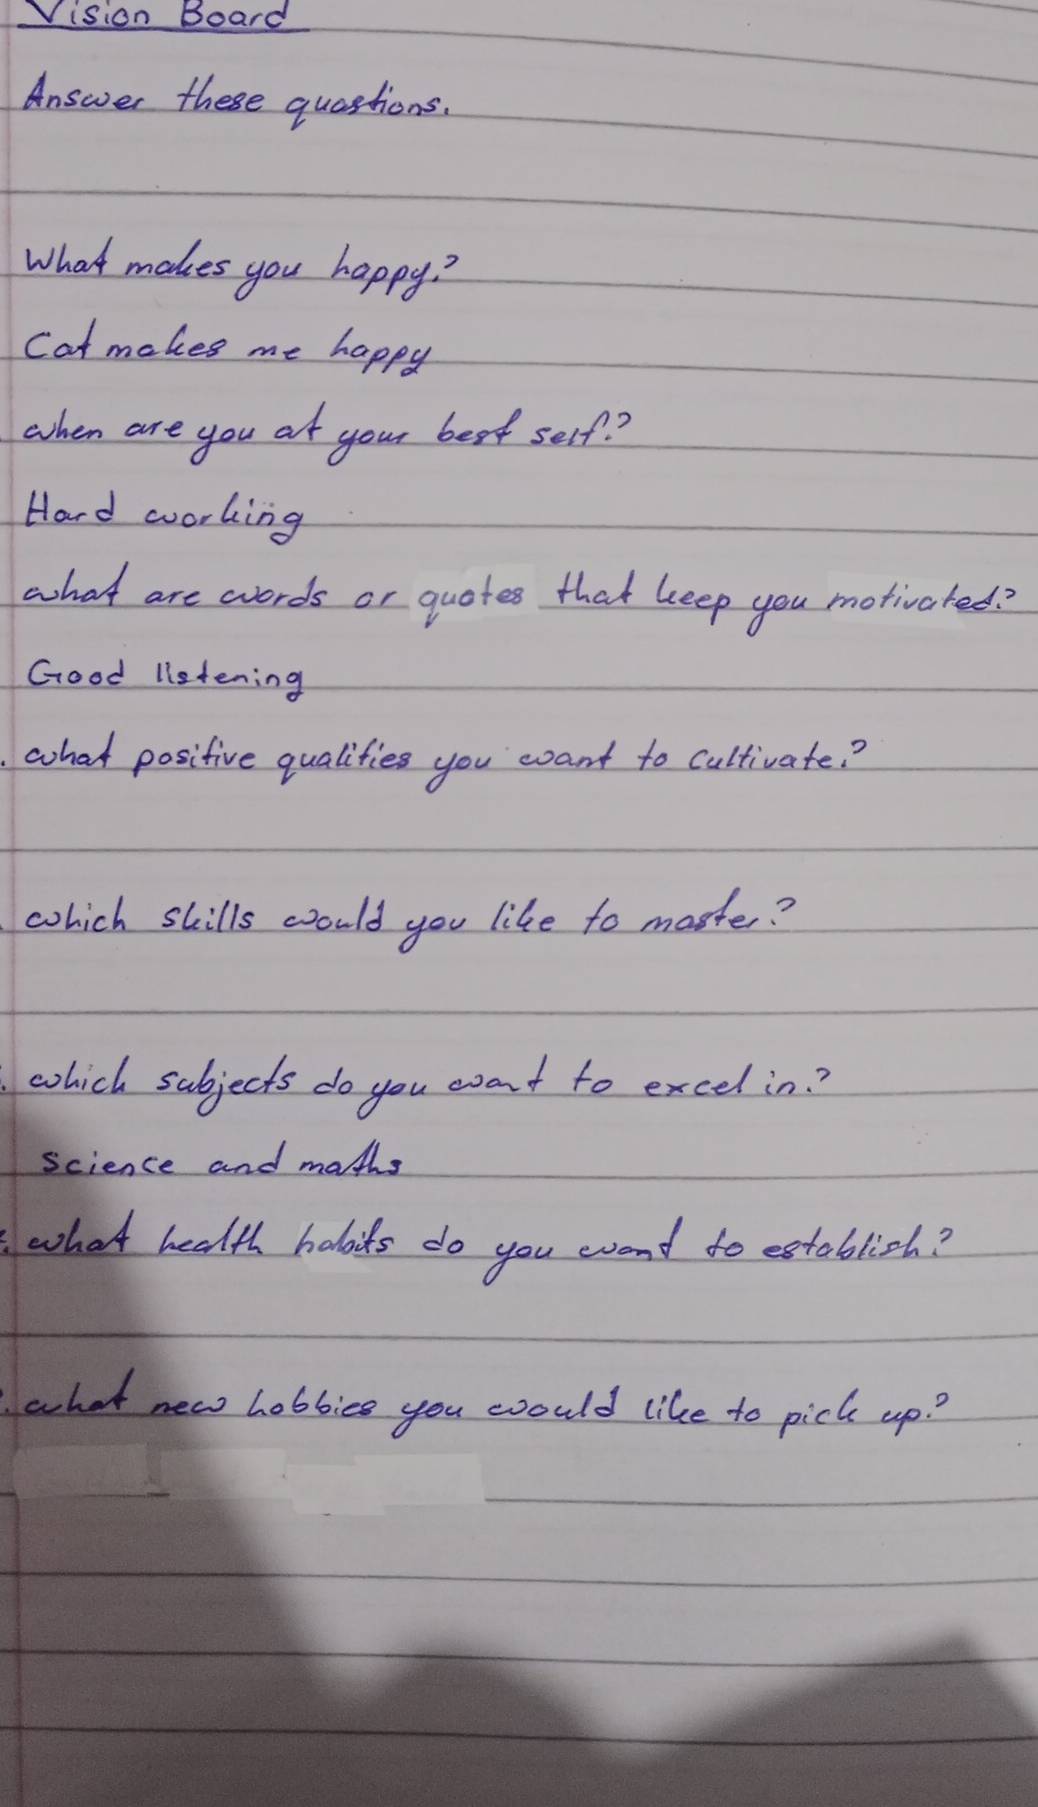 Vision Board
Answer these quastions.
What makes you happy?
Cat makes me happy
when are you at your best self?
Hard working
what are words or quotes that keep you motivated?
Good listening
. what positive qualities you want to cultivate?
which skills would you like to master?
. which subjects do you want to excel in?
science and maths
. what health habits do you want to establish?
. what new hobbies you would like to pick up?